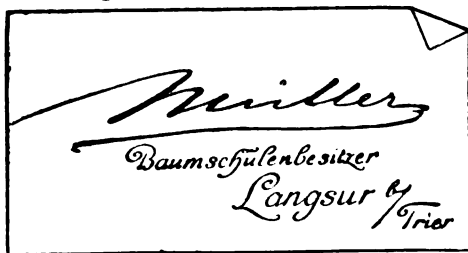 Müller
Baumschulenbesitzer
Langsur b/Trier